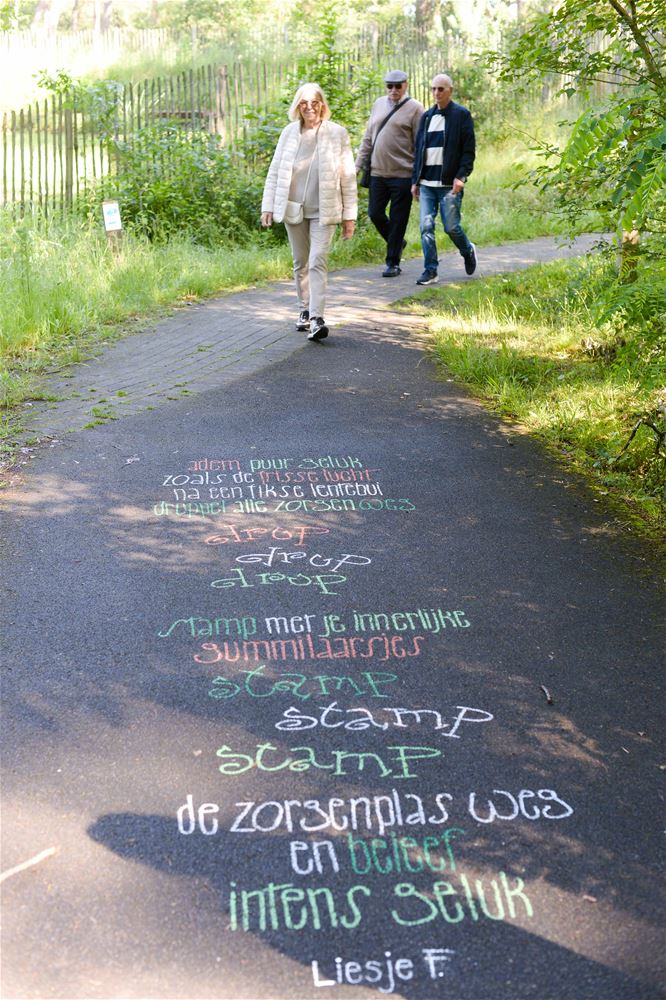 adem puur geluk
zoals de frisse lucht
na een fikse lentebui
druppel alle zorgen weg
drup
drup
drup
stamp met je innerlijke
gummilaarsjes
stamp
stamp
stamp
de zorgenplas weg
en beleef
intens geluk
Liesje F.